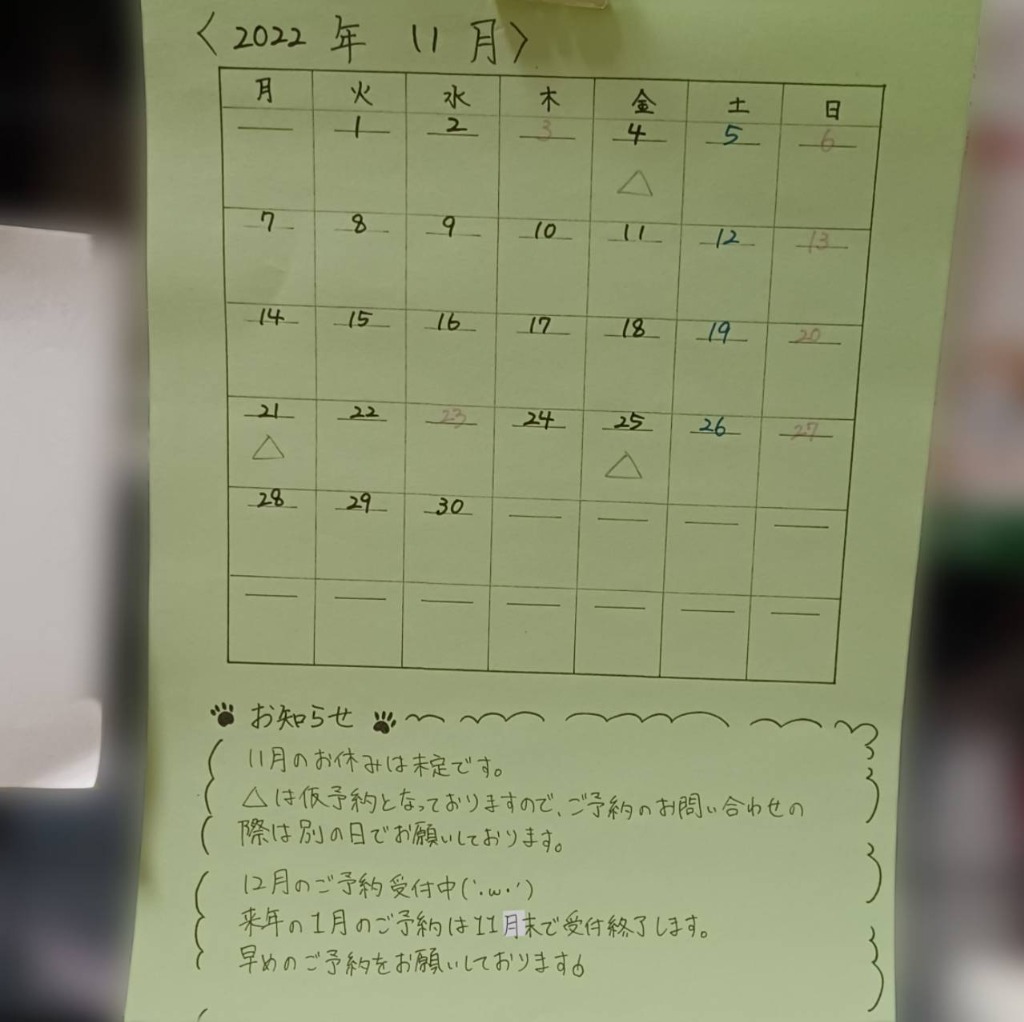 〈2022 年 11 月〉
月 火 水 木 金 土 日
1 2 3 4 5 6
△
7 8 9 10 11 12 13
14 15 16 17 18 19 20
21 22 23 24 25 26 27
△ △
28 29 30
お知らせ
11月のお休みは未定です。
△は仮予約となっておりますので、ご予約のお問い合わせの
際は別の日でお願いしております。
12月のご予約受付中(´・ω・`)
来年の1月のご予約は11月末で受付終了します。
早めのご予約をお願いしております。